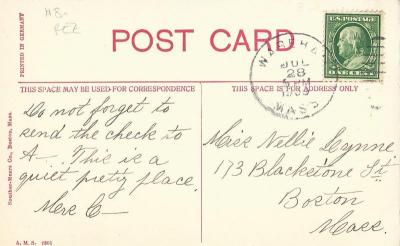 H8-
POST CARD
PRINTED IN GERMANY
U.S. POSTAGE
ONE CENT
WAREHAM
JUL
28
5 PM
1909
MASS
THIS SPACE MAY BE USED FOR CORRESPONDENCE
THIS SPACE IS FOR ADDRESS ONLY
Do not forget to
send the check to
A—. This is a
quiet pretty place.
Mere C—
Miss Nellie Lynne
173 Blackstone St.
Boston
Mass.
Souther-Mears Co., Boston, Mass.
A. M. S.